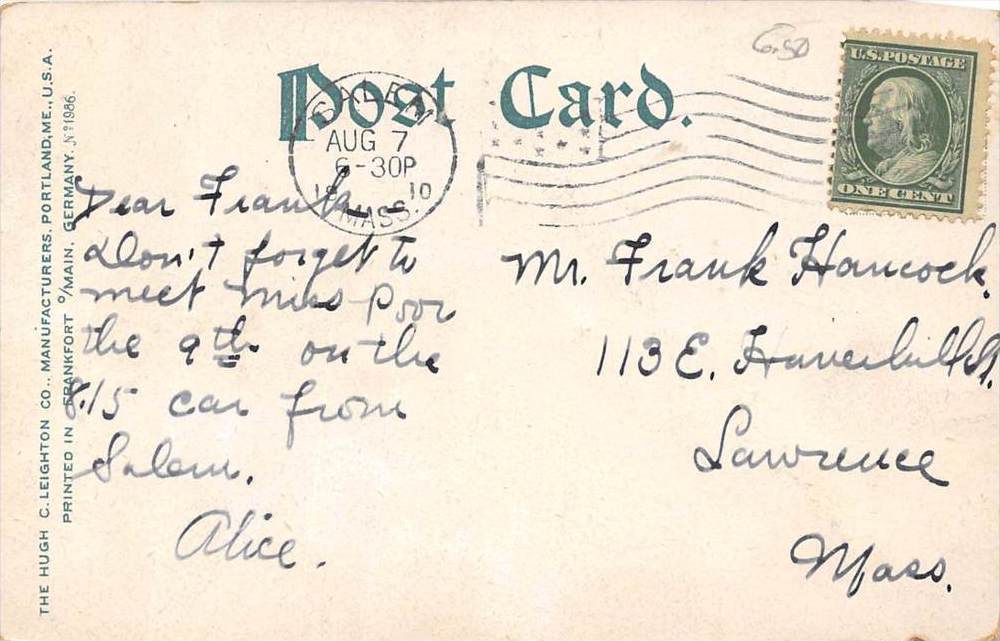 Post Card.
6.50
U.S. POSTAGE
ONE CENT
SALEM
AUG 7
6-30P
19 10
MASS.
Dear Frank
Don't forget to
meet Miss Poor
the 9th on the
8.15 car from
Salem.
Alice.
Mr. Frank Hancock.
113 E. Haverhill St.
Lawrence
Mass.
THE HUGH C. LEIGHTON CO., MANUFACTURERS, PORTLAND, ME., U.S.A.
PRINTED IN FRANKFORT o/MAIN, GERMANY. No 1986.